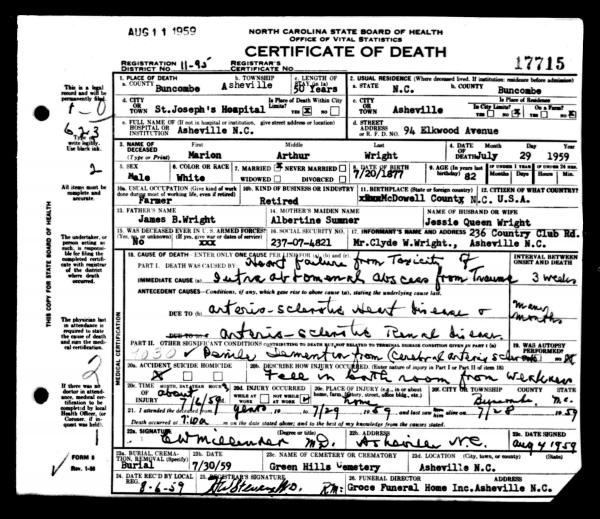 AUG 11 1959
NORTH CAROLINA STATE BOARD OF HEALTH
OFFICE OF VITAL STATISTICS
CERTIFICATE OF DEATH
REGISTRATION DISTRICT NO. 11-95
REGISTRAR'S CERTIFICATE NO.
17715
1. PLACE OF DEATH
a. COUNTY Buncombe
b. TOWNSHIP Asheville
c. LENGTH OF STAY (in 1a) 50 Years
2. USUAL RESIDENCE (Where deceased lived. If institution: residence before admission)
a. STATE N.C.
b. COUNTY Buncombe
d. CITY OR TOWN St.Joseph's Hospital
Is Place of Death Within City Limits? YES X NO
c. CITY OR TOWN Asheville
In City Limits? On a Farm?
e. FULL NAME OF HOSPITAL OR INSTITUTION (If not in hospital or institution, give street address or location) Asheville N.C.
d. STREET ADDRESS OR R. F. D. NO. 94 Elkwood Avenue
3. NAME OF DECEASED (Type or Print)
First Marion
Middle Arthur
Last Wright
4. DATE OF DEATH July 29 1959
5. SEX Male
6. COLOR OR RACE White
7. MARRIED X NEVER MARRIED
WIDOWED DIVORCED
8. DATE OF BIRTH 7/20/1877
9. AGE (In years last birthday) 82
10a. USUAL OCCUPATION (Give kind of work done during most of working life, even if retired) Farmer
10b. KIND OF BUSINESS OR INDUSTRY Retired
11. BIRTHPLACE (State or foreign country) McDowell County N.C.
12. CITIZEN OF WHAT COUNTRY? U.S.A.
13. FATHER'S NAME James B.Wright
14. MOTHER'S MAIDEN NAME Albertine Sumner
NAME OF HUSBAND OR WIFE Jessie Queen Wright
15. WAS DECEASED EVER IN U. S. ARMED FORCES? (Yes, no, or unknown) (If yes, give war or dates of service) No xxx
16. SOCIAL SECURITY NO. 237-07-4821
17. INFORMANT'S NAME AND ADDRESS 236 Country Club Rd.
Mr.Clyde W.Wright., Asheville N.C.
18. CAUSE OF DEATH ENTER ONLY ONE CAUSE PER LINE FOR (a), (b) and (c).
INTERVAL BETWEEN ONSET AND DEATH
PART I. DEATH WAS CAUSED BY: Heart failure from Toxicity of
IMMEDIATE CAUSE (a) Intra abdominal abscess from Trauma 3 weeks
ANTECEDENT CAUSES—Conditions, if any, which gave rise to above cause (a), stating the underlying cause last.
DUE TO (b) arterio-sclerotic Heart Disease &
many months
DUE TO (c) arterio-sclerotic Renal disease
PART II. OTHER SIGNIFICANT CONDITIONS CONTRIBUTING TO DEATH BUT NOT RELATED TO TERMINAL DISEASE CONDITION GIVEN IN PART I(a)
Senile Dementia from Cerebral arterio sclerosis
19. WAS AUTOPSY PERFORMED? no
20a. ACCIDENT SUICIDE HOMICIDE X
20b. DESCRIBE HOW INJURY OCCURRED. (Enter nature of injury in Part I or Part II of item 18)
Fell in bath room from weakness
20c. TIME OF INJURY about 7/6/59
20d. INJURY OCCURRED WHILE AT WORK NOT WHILE AT WORK
20e. PLACE OF INJURY (e.g., in or about home, farm, factory, street, office bldg., etc.) Home
20f. CITY OR TOWNSHIP COUNTY STATE Buncombe N.C.
21. I attended the deceased from years 19 to 7/29 1959 and last saw alive on 7/28 1959
Death occurred at 7:10a m on the date stated above; and to the best of my knowledge from the causes stated.
22a. SIGNATURE (Degree or title) M.D.
22b. ADDRESS Asheville N.C.
22c. DATE SIGNED Aug 4 1959
23a. BURIAL, CREMATION, REMOVAL (Specify) Burial
23b. DATE 7/30/59
23c. NAME OF CEMETERY OR CREMATORY Green Hills Vemetery
23d. LOCATION (City, town, or county) (State) Asheville N.C.
24. DATE REC'D BY LOCAL REG. 8-6-59
25. REGISTRAR'S SIGNATURE
26. FUNERAL DIRECTOR Groce Funeral Home Inc.Asheville N.C.
This is a legal record and will be permanently filed.
Type or write plainly. Use black ink.
All items must be complete and accurate.
THIS COPY FOR STATE BOARD OF HEALTH
The undertaker, or person acting as such, is responsible for filing the completed certificate with registrar of the district where death occurred.
The physician last in attendance is required to state the cause of death and sign the medical certification.
If there was no doctor in attendance, medical certification to be completed by local Health Officer, (or Coroner, if inquest was held).
FORM 8
Rev. 1-56
MEDICAL CERTIFICATION